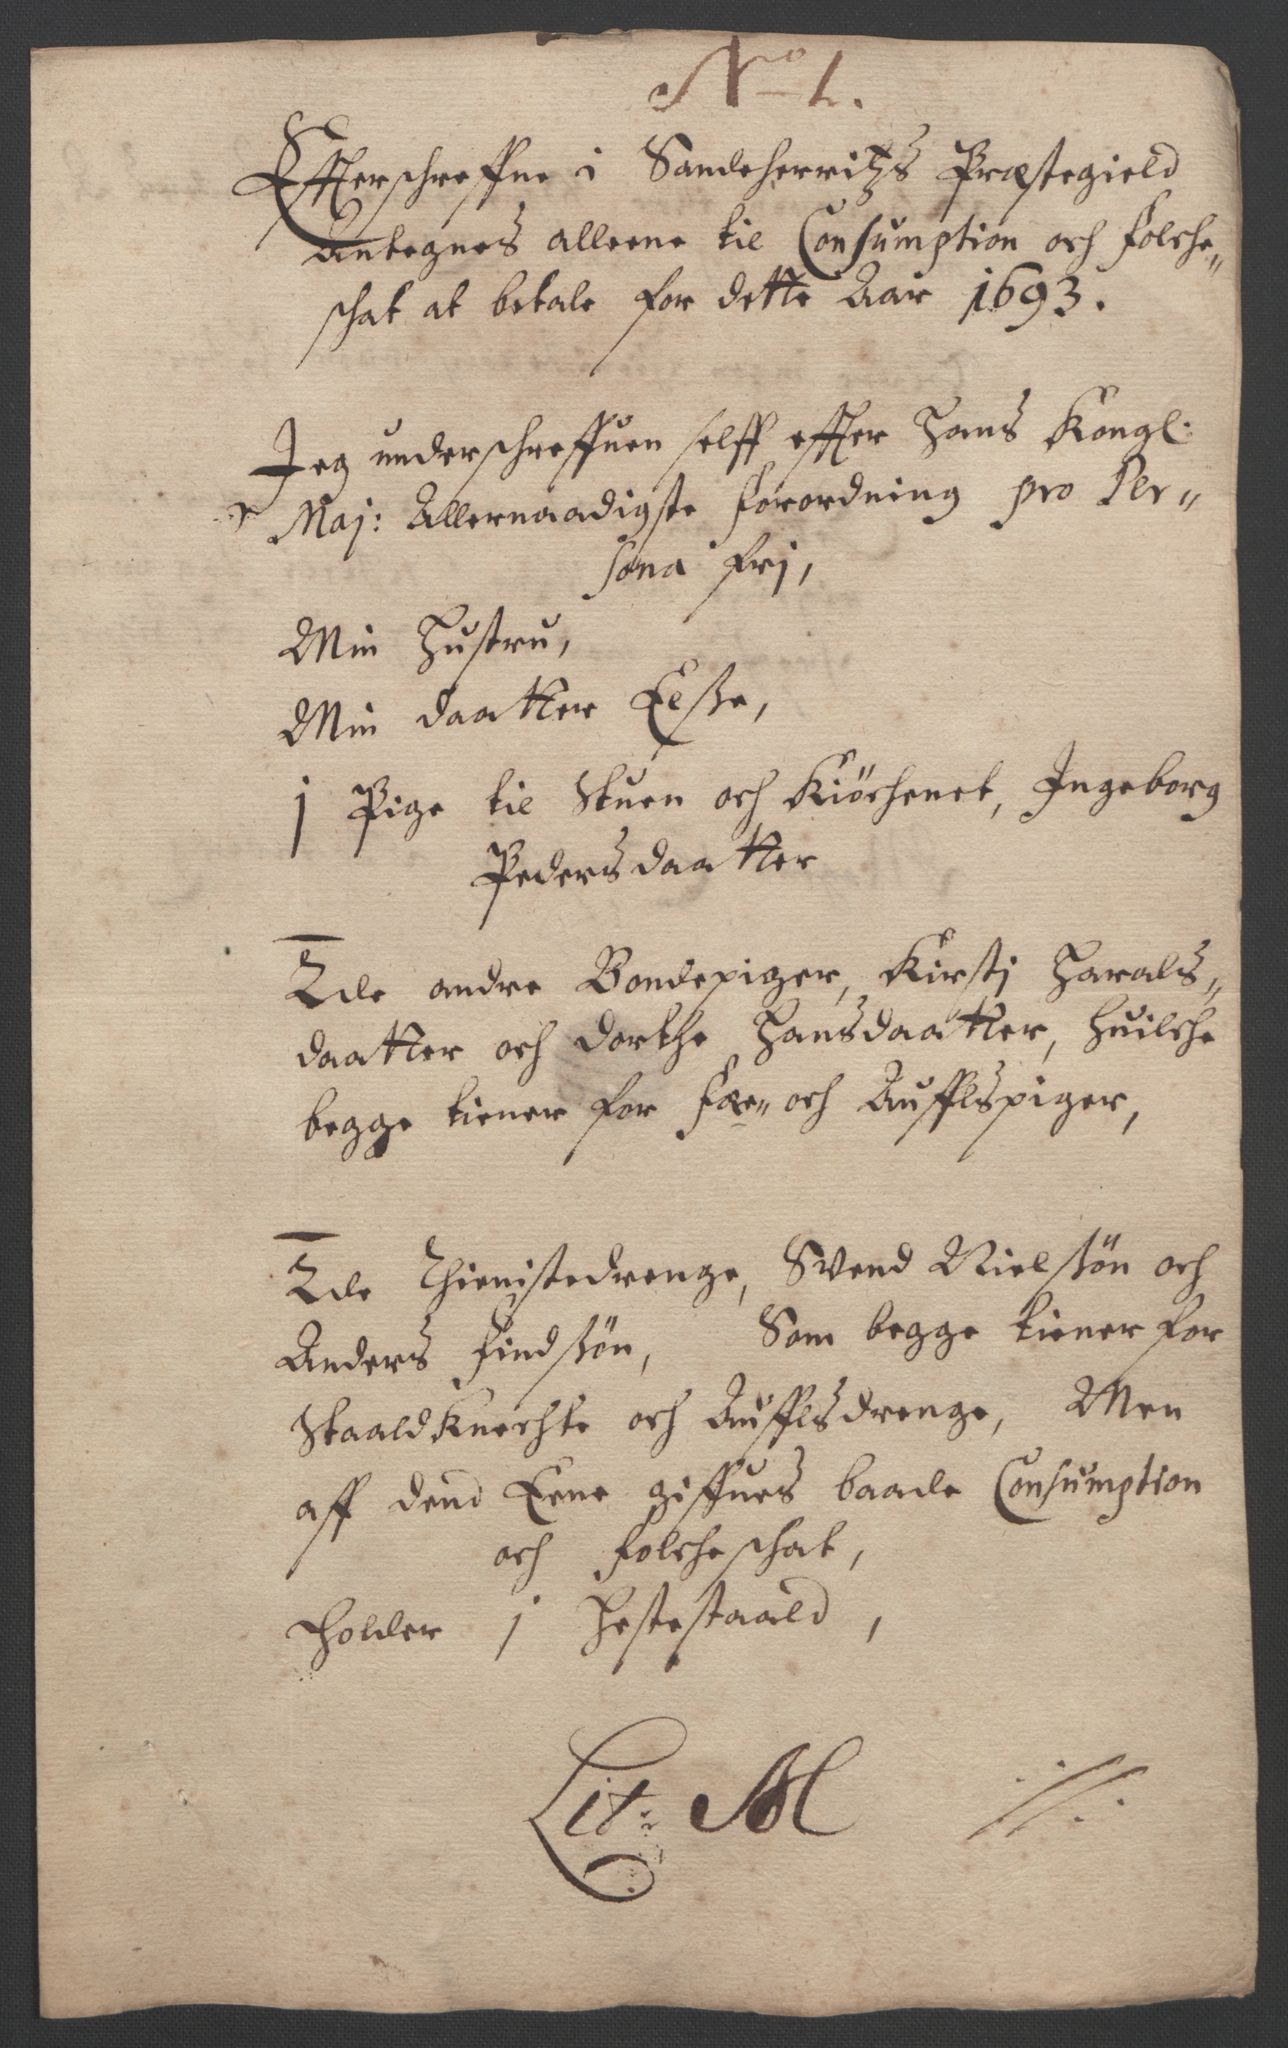 No 1.
Effterschreffne i Sandeherritzs Præstegield
Antegnes alleene til Consumption och folche„
schat at betale for dette Aar 1693.
Jeg underschreffuen selff effter Hans Kongl:
Maj: Allernaadigste forordning pro Per„
sona frj,
Min Hustru,
Min daatter Elsse,
1 Pige til Stuen och Kiöchenet, Ingeborg
Pedersdaatter
2de andre Bondepiger, Kirstj Harals„
daatter och dorthe Hansdaatter, huilche
begge tiener for fæe„ och Aufflspiger,
2de Thienistedrenge, Svend Nielssön och
Anders findssön, Som begge tiener for
Staaldknechte och Aufflsdrenge, Men
aff dend Eene giffues baade Consumption
och folcheschat,
Holder 1 Hestestaald,
Lit: M